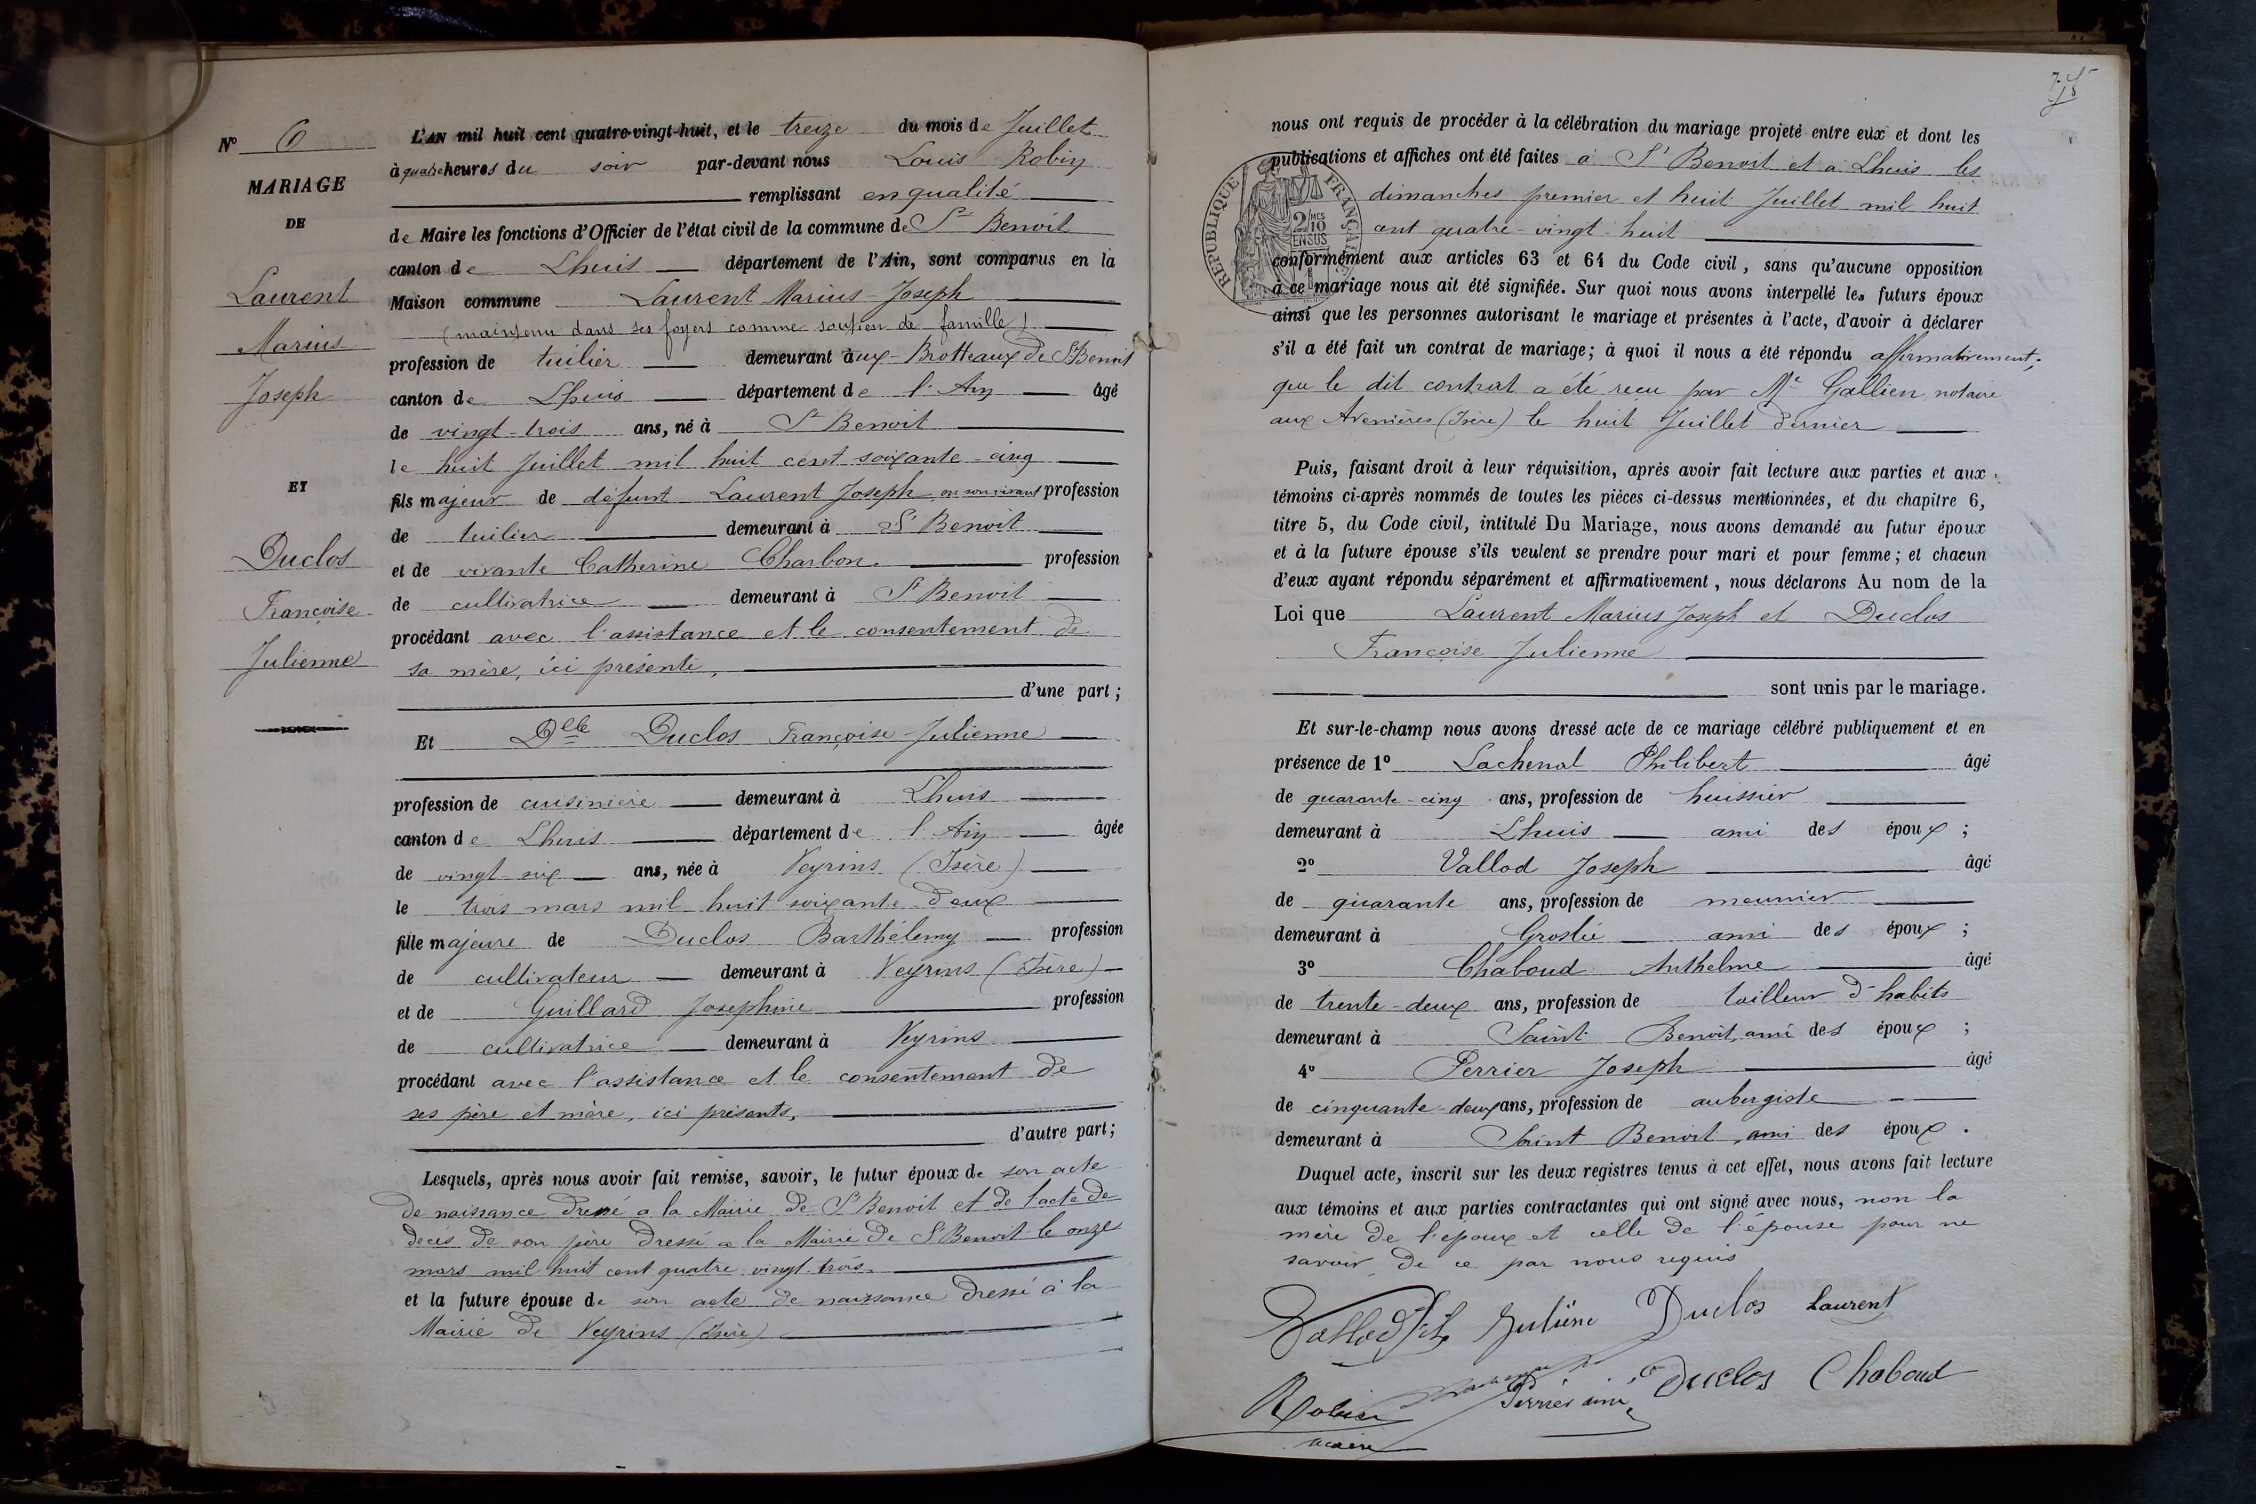 N° 6
MARIAGE
DE
Laurent
Marius
Joseph
ET
Duclos
Françoise
Julienne
L'AN mil huit cent quatre-vingt-huit, et le treize du mois de Juillet
à quatre heures du soir par-devant nous Louis Robin
remplissant en qualité
de Maire les fonctions d'Officier de l'état civil de la commune de St Benoit
canton de Lhuis département de l'Ain, sont comparus en la
Maison commune Laurent Marius-Joseph
(maintenu dans ses foyers comme soutien de famille)
profession de tuilier demeurant aux Brotteaux de St Benoit
canton de Lhuis département de l'Ain âgé
de vingt-trois ans, né à St Benoit
le huit Juillet mil huit cent soixante-cinq
fils majeur de défunt Laurent Joseph en son vivant profession
de tuilier demeurant à St Benoit
et de vivante Catherine Charbon. profession
de cultivatrice demeurant à St Benoit
procédant avec l'assistance et le consentement de
sa mère, ici présente,
d'une part;
Et Dlle Duclos Françoise-Julienne
profession de cuisinière demeurant à Lhuis
canton de Lhuis département de l'Ain âgée
de vingt-six ans, née à Veyrins (Isère)
le trois mars mil huit soixante-deux
fille majeure de Duclos Barthélemy profession
de cultivateur demeurant à Veyrins (Isère)
et de Guillard Josephine profession
de cultivatrice demeurant à Veyrins
procédant avec l'assistance et le consentement de
ses père et mère, ici présents,
d'autre part;
Lesquels, après nous avoir fait remise, savoir, le futur époux de son acte
de naissance dressé a la Mairie de St Benoit et de l'acte de
deces de son père dressé a la Mairie de St Benoit le onze
mars mil huit cent quatre vingt-trois.
et la future épouse de son acte de naissance dressé à la
Mairie de Veyrins (Isère)
nous ont requis de procéder à la célébration du mariage projeté entre eux et dont les
publications et affiches ont été faites à St Benoit et à Lhuis les
dimanches premier et huit Juillet mil huit
cent quatre-vingt-huit
RÉPUBLIQUE FRANÇAISE
2/10MES
EN SUS
conformément aux articles 63 et 64 du Code civil, sans qu'aucune opposition
à ce mariage nous ait été signifiée. Sur quoi nous avons interpellé les futurs époux
ainsi que les personnes autorisant le mariage et présentes à l'acte, d'avoir à déclarer
s'il a été fait un contrat de mariage; à quoi il nous a été répondu affirmativement;
que le dit contrat a été reçu par Me Gallien, notaire
aux Avenières (Isère) le huit Juillet dernier
Puis, faisant droit à leur réquisition, après avoir fait lecture aux parties et aux
témoins ci-après nommés de toutes les pièces ci-dessus mentionnées, et du chapitre 6,
titre 5, du Code civil, intitulé Du Mariage, nous avons demandé au futur époux
et à la future épouse s'ils veulent se prendre pour mari et pour femme; et chacun
d'eux ayant répondu séparément et affirmativement, nous déclarons Au nom de la
Loi que Laurent Marius Joseph et Duclos
Françoise Julienne
sont unis par le mariage.
Et sur-le-champ nous avons dressé acte de ce mariage célébré publiquement et en
présence de 1° Lachenal Philibert âgé
de quarante-cinq ans, profession de huissier
demeurant à Lhuis ami des époux;
2° Vallod Joseph âgé
de quarante ans, profession de meunier
demeurant à Groslée ami des époux;
3° Chaboud Anthelme âgé
de trente-deux ans, profession de tailleur d'habits
demeurant à Saint Benoit, ami des époux;
4° Perrier Joseph âgé
de cinquante-deux ans, profession de aubergiste
demeurant à Saint Benoit, ami des époux.
Duquel acte, inscrit sur les deux registres tenus à cet effet, nous avons fait lecture
aux témoins et aux parties contractantes qui ont signé avec nous, non la
mère de l'époux et celle de l'épouse pour ne
savoir, de ce par nous requis
Vallod Julienne Duclos Laurent
Perrier aîné Duclos Chaboud
Robin
maire